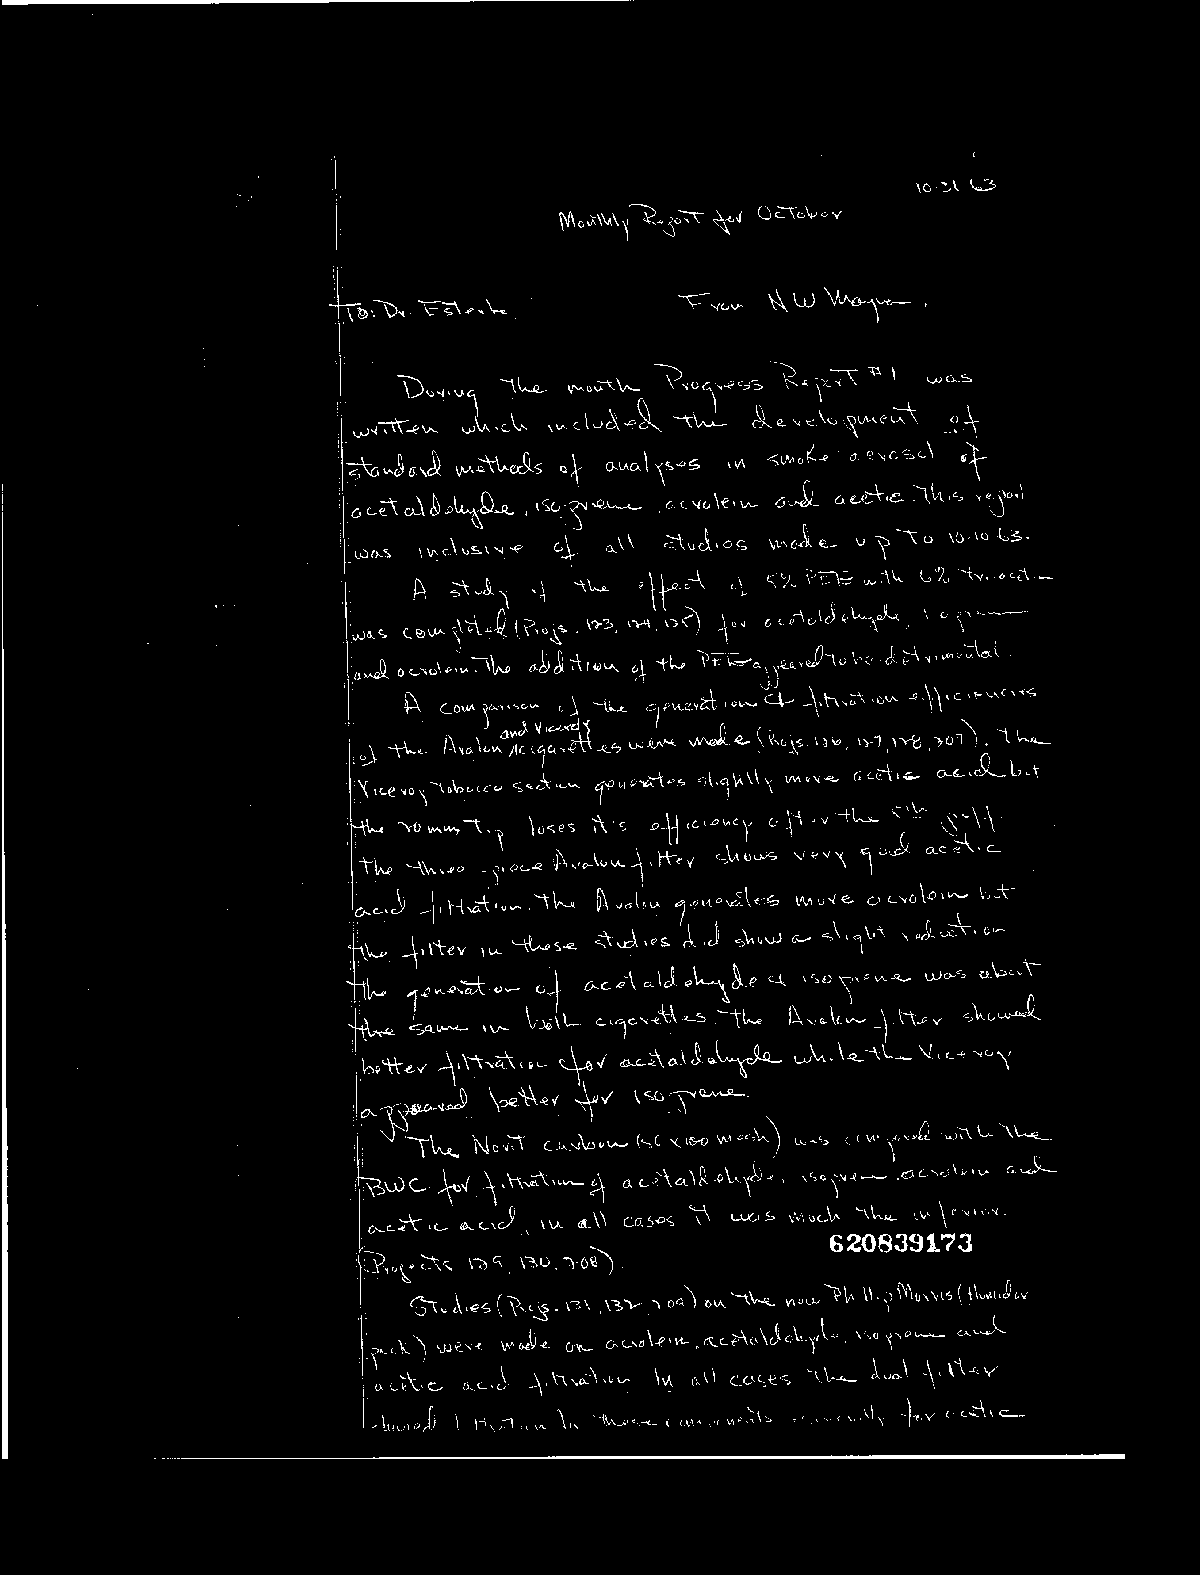 10-31 63
Monthly Report for October
To: Dr. Esterle. From N W Mayer.
During the month Progress Report #1 was
written which included the development of
standard methods of analyses in smoke aerosol of
acetaldehyde, isoprene, acrolein and acetic. This report
was inclusive of all studies made up to 10-10 63.
A study of the effect of 5% with 6%
was completed (Projs. 123, 124, 125) for acetaldehyde, isoprene
and acrolein. The addition of the appeared to be detrimental.
A comparison of the generation & filtration efficiencies
and Viceroy
of the Avalon cigarettes were made (Projs. 126, 127, 128, 207). The
Viceroy tobacco section generates slightly more acetic acid but
the 20mm Tip loses it's efficiency after the 5th puff.
The three-piece Avalon filter shows very good acetic
acid filtration. The Avalon generates more acrolein but
the filter in these studies did show a slight reduction
the generation of acetaldehyde & isoprene was about
the same in both cigarettes. The Avalon filter showed
better filtration for acetaldehyde while the Viceroy
appeared better for isoprene.
The Norit carbon (50 x 100 mesh) was compared with the
BWC for filtration of acetaldehyde, isoprene, acrolein and
acetic acid, in all cases it was much the inferior.
620839173
(Projects 129, 130, 208).
Studies (Projs. 131, 132, 209) on the new Philip Morris (Humidor
pack) were made on acrolein, acetaldehyde, isoprene and
acetic acid filtration In all cases the dual filter
showed filtration these components for acetic